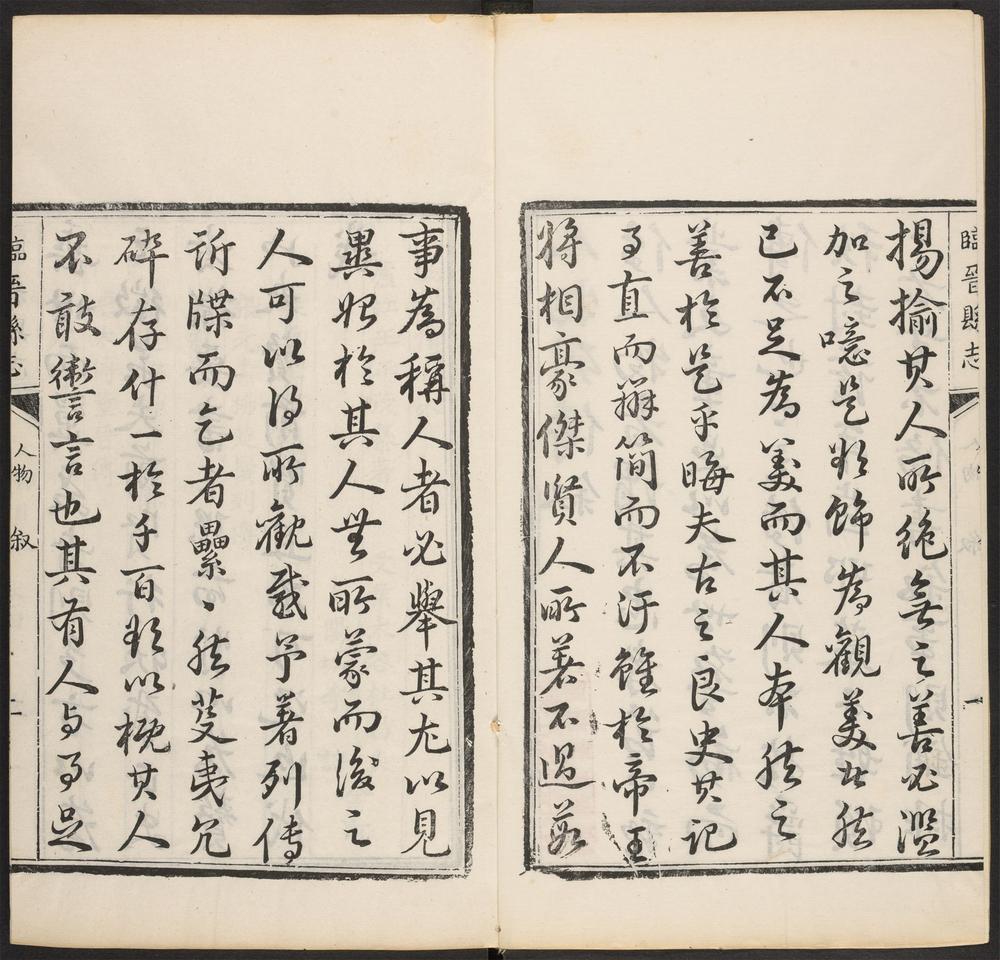 臨晉縣志
一
揚揄其人所絶無之善必濫
加之噫是欲飾為觀美者然
已不足為美而其人本然之
善於是乎晦夫古之良史其記
事直而辯簡而不汙雖於帝王
將相豪傑賢人所著不過數
事為稱人者必舉其尤以見
異始於其人無所蒙而後之
人可以得所觀感予著列傳
訴牒而乞者纍、然芟夷冗
碎存什一於千百欲以概其人
不敢讆言也其有人与事足
臨晉縣志
人物
叙
二